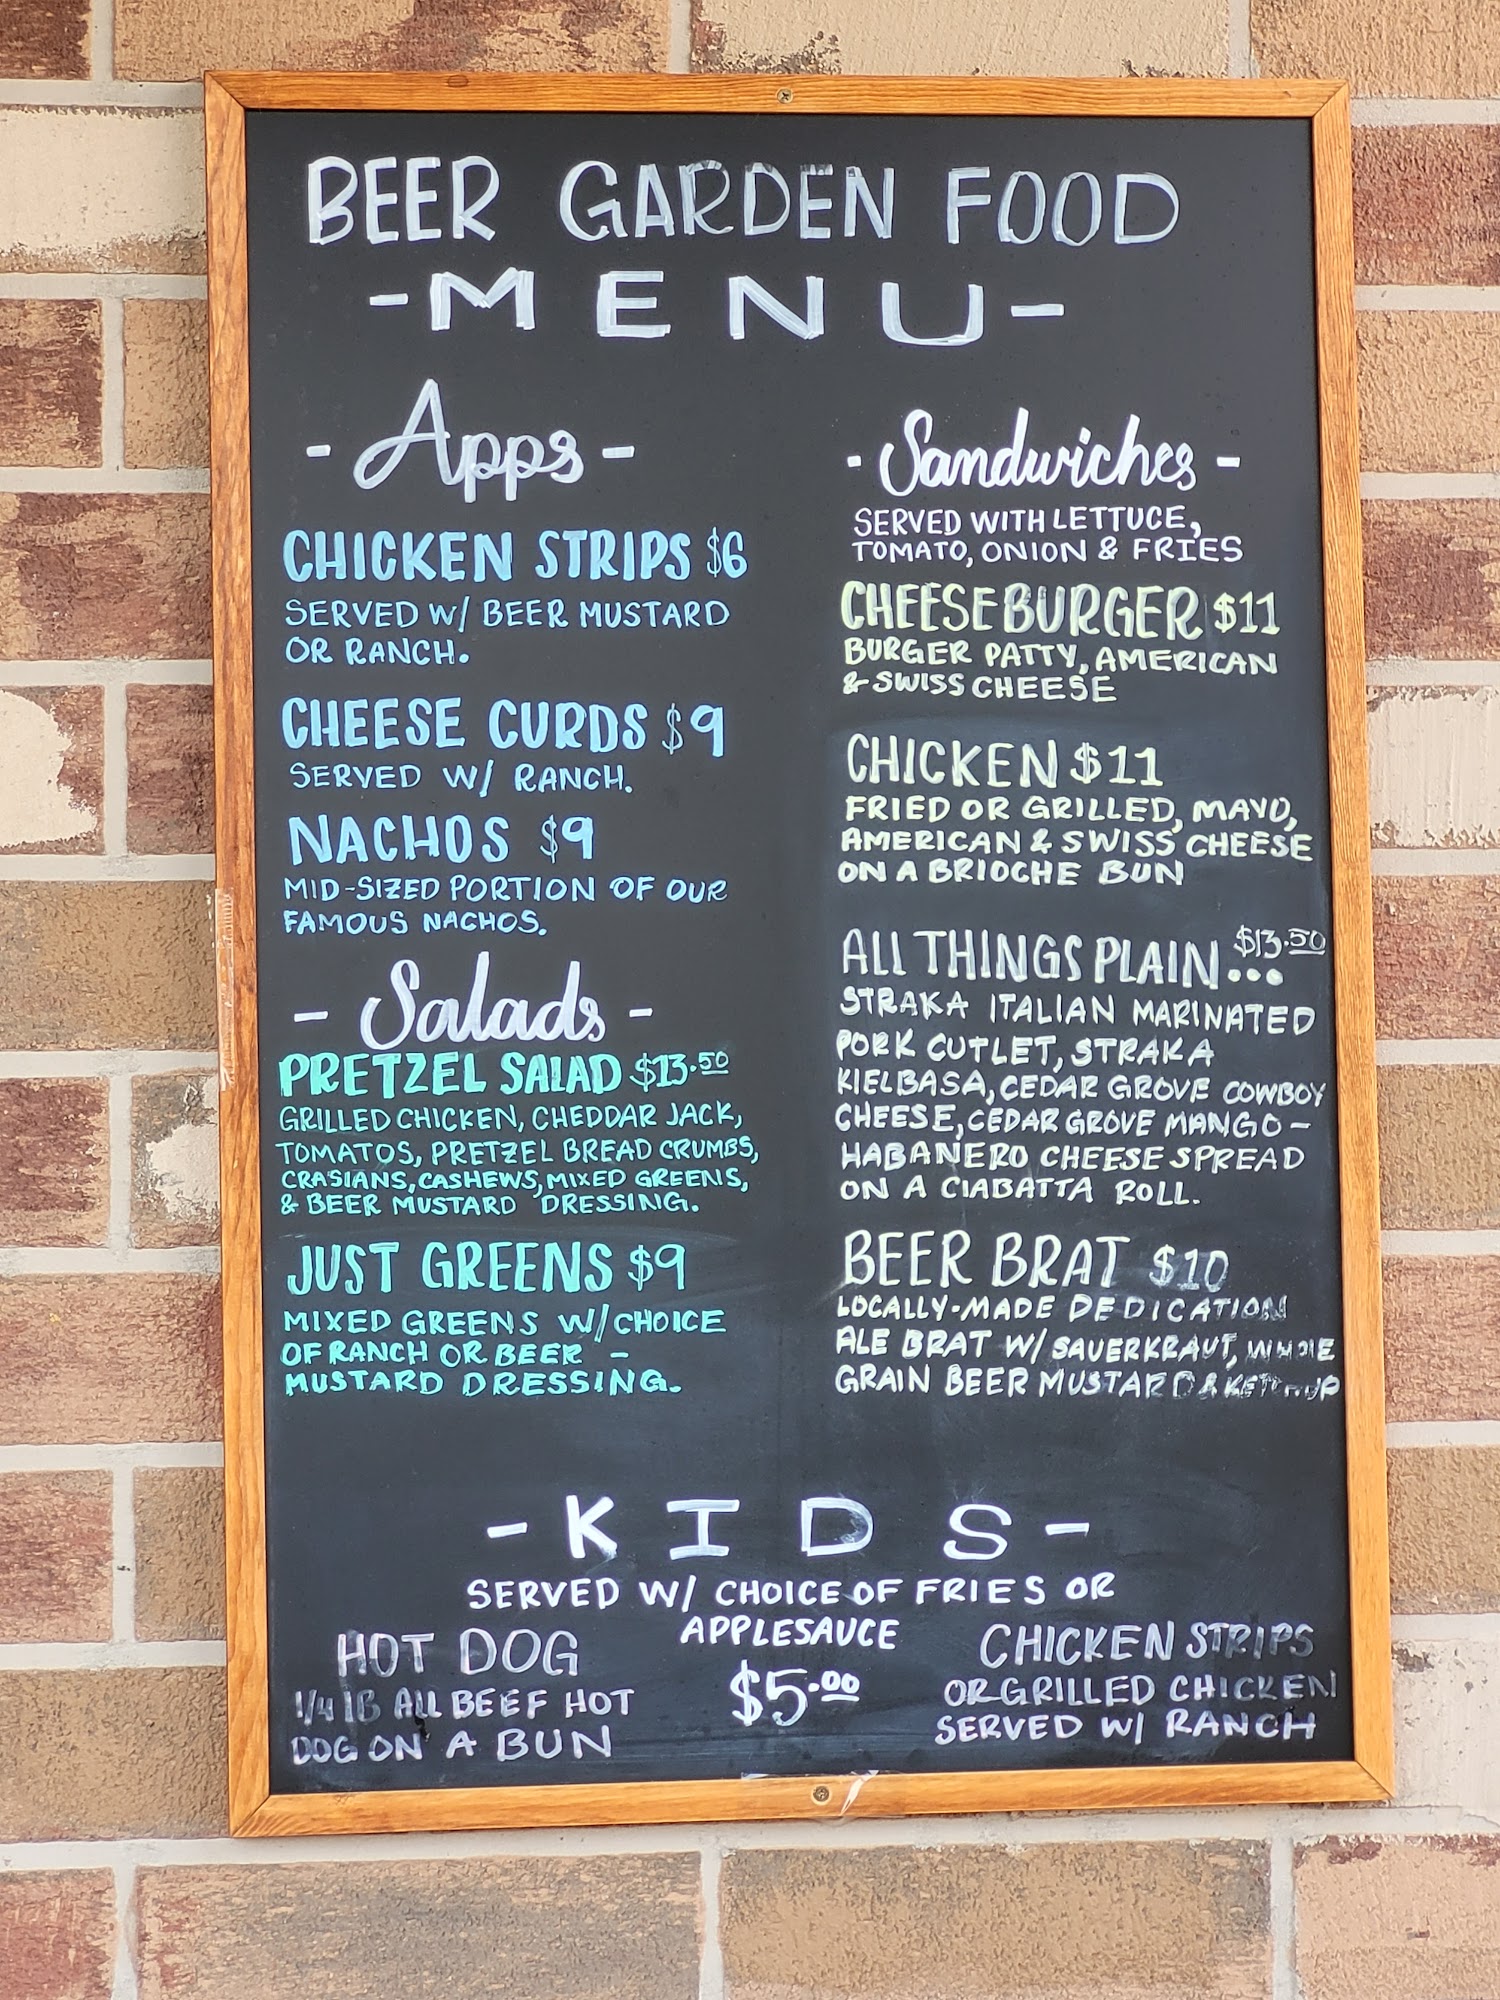 BEER GARDEN FOOD
-MENU-
- Apps -
CHICKEN STRIPS $6
SERVED W/ BEER MUSTARD
OR RANCH.
CHEESE CURDS $9
SERVED W/ RANCH.
NACHOS $9
MID-SIZED PORTION OF OUR
FAMOUS NACHOS.
- Salads -
PRETZEL SALAD $13.50
GRILLED CHICKEN, CHEDDAR JACK,
TOMATOS, PRETZEL BREAD CRUMBS,
CRASIANS, CASHEWS, MIXED GREENS,
& BEER MUSTARD DRESSING.
JUST GREENS $9
MIXED GREENS W/ CHOICE
OF RANCH OR BEER -
MUSTARD DRESSING.
- Sandwiches -
SERVED WITH LETTUCE,
TOMATO, ONION & FRIES
CHEESEBURGER $11
BURGER PATTY, AMERICAN
& SWISS CHEESE
CHICKEN $11
FRIED OR GRILLED, MAYO,
AMERICAN & SWISS CHEESE
ON A BRIOCHE BUN
ALL THINGS PLAIN... $13.50
STRAKA ITALIAN MARINATED
PORK CUTLET, STRAKA
KIELBASA, CEDAR GROVE COWBOY
CHEESE, CEDAR GROVE MANGO-
HABANERO CHEESE SPREAD
ON A CIABATTA ROLL.
BEER BRAT $10
LOCALLY-MADE DEDICATION
ALE BRAT W/ SAUERKRAUT, WHOLE
GRAIN BEER MUSTARD & KETCHUP
-KIDS-
SERVED W/ CHOICE OF FRIES OR
APPLESAUCE
$5.00
HOT DOG
1/4 lB ALL BEEF HOT
DOG ON A BUN
CHICKEN STRIPS
OR GRILLED CHICKEN
SERVED W/ RANCH